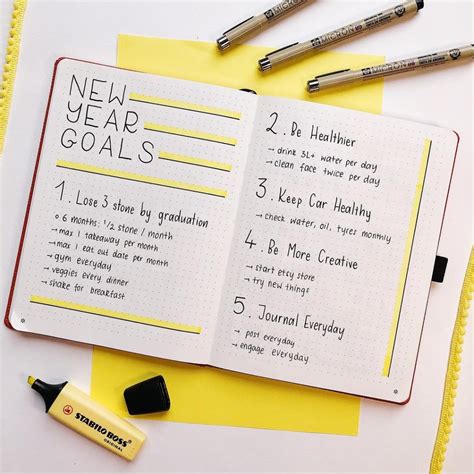 NEW
YEAR
GOALS
1. Lose 3 stone by graduation
→ 6 months: 1/2 stone / month
→ max 1 takeaway per month
→ max 1 eat out date per month
→ gym everyday
→ veggies every dinner
→ shake for breakfast
2. Be Healthier
→ drink 3L+ water per day
→ clean face twice per day
3. Keep Car Healthy
→ check water, oil, tyres monthly
4. Be More Creative
→ start etsy store
→ try new things
5. Journal Everyday
→ post everyday
→ engage everyday
MICRON
MICRON
MICRON
STABILO BOSS
ORIGINAL